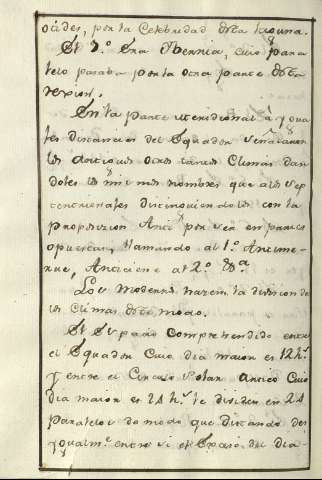 oides, por la Celebridad desta Laguna.
El 7.º era Ybernia, cuio para
lelo pasaba por la otra parte desta
region.
En la parte meridional à yqua
les distancias del Equador señalaron
los Antiguos otros tantos Climas dan
doles los mismos nombres que a los sep
tentrionales distinguiendolos con la
proposizion Anti por ser en partes
opuestas, llamando al 1.º Antime-
roe, Antisiene al 2.º &.ª
Los modernos hazen la division de
los Climas deste modo.
El Espacio Comprehendido entre
el Equador Cuio dia maior es 12 h.s
y entre el Circulo Polar Artico Cuio
dia maior es 24 h.s le dividen en 24
paralelos de modo que distando des
yqualm.te entre si el Exceso del dia